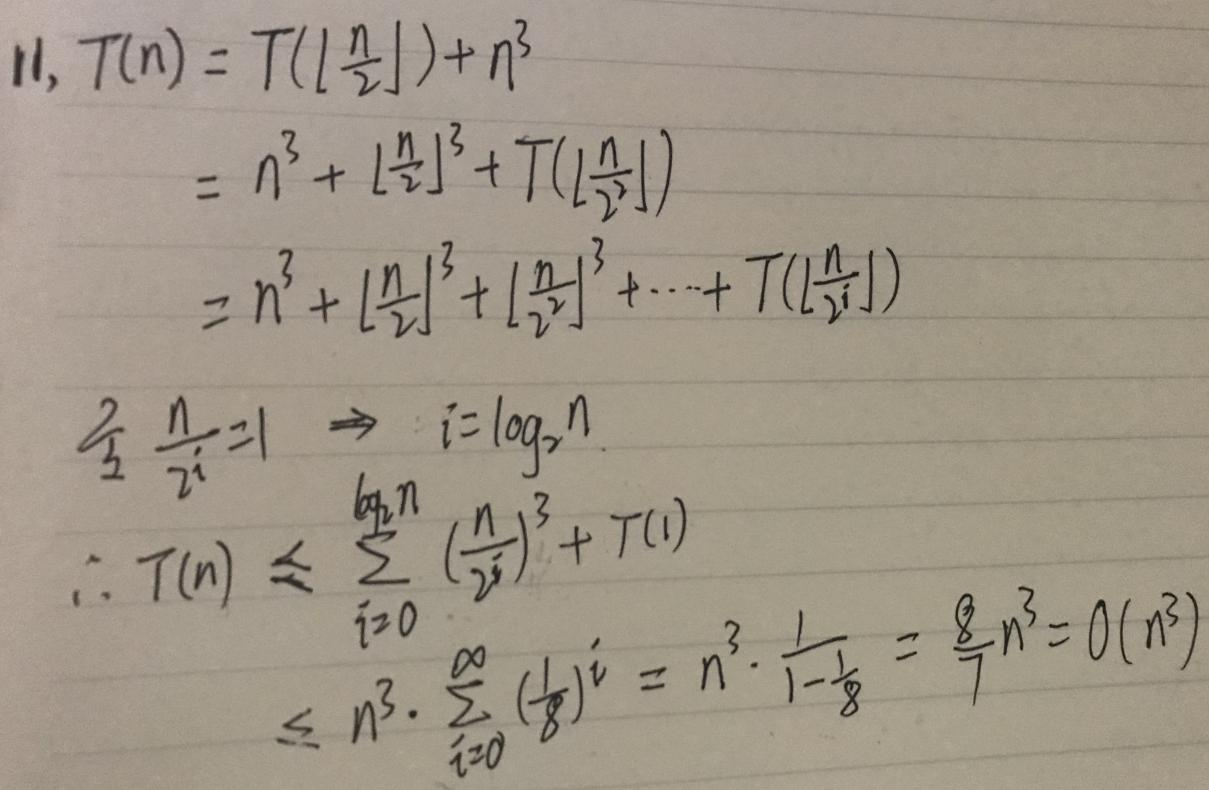 11, T(n) = T(⌊n/2⌋) + n³
= n³ + ⌊n/2⌋³ + T(⌊n/2²⌋)
= n³ + ⌊n/2⌋³ + ⌊n/2²⌋³ + ⋯ + T(⌊n/2ⁱ⌋)
令 n/2ⁱ = 1 ⇒ i = log₂n.
∴ T(n) ≤ ∑_{i=0}^{log₂n} (n/2ⁱ)³ + T(1)
≤ n³ · ∑_{i=0}^{∞} (1/8)ⁱ = n³ · 1/(1 - 1/8) = 8/7 n³ = O(n³)